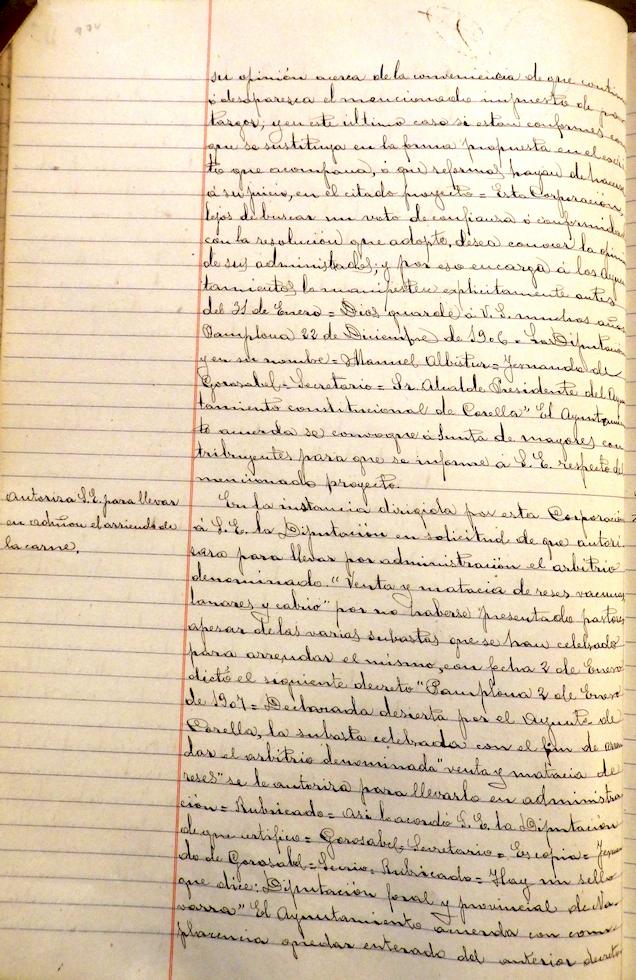 su opinión acerca de la conveniencia de que contin
ó desaparezca el mencionado impuesto de por
tazgos; y en este último caso si estan conformes con
que se sustituya en la forma propuesta en el escri
to que acompaña, ó que reformas hayan de hacerse
á su juicio, en el citado proyecto = Esta Corporación,
lejos de buscar un voto de confianza ó conformidad
con la resolución que adopte, desea conocer la opin
de sus administrados; y por eso encarga á los Ayun
tamientos la manifiesten explicitamente antes
del 31 de Enero = Dios guarde á V.S. muchos años
Pamplona 22 de Diciembre de 1906 = La Diputación
y en su nombre = Manuel Albistur = Fernando de
Gorosabel = Secretario = Sr. Alcalde Presidente del Ayun
tamiento constitucional de Corella" El Ayuntamien
to acuerda se convoque á Junta de mayores con
tribuyentes para que se informe á S.E. respecto del
mencionado proyecto.
Autoriza S.E. para llevar
en admon el arriendo de
la carne.
En la instancia dirigida por esta Corporación
á S.E. la Diputación en solicitud de que autori
sara para llevar por administración el arbitrio
denominado "Venta y matacia de reses vacunas
lanares y cabrio" por no haberse presentado postores
apesar de las varias subastas que se han celebrado
para arrendar el mismo, con fecha 2 de Enero
dictó el siguiente decreto "Pamplona 2 de Enero
de 1907 = Declarada desierta por el Ayunto de
Corella, la subasta celebrada con el fin de arren
dar el arbitrio denominada "venta y matacia de
reses" se le autoriza para llevarlo en administra
ción = Rubricado = Asi lo acordó S.E. la Diputación
de que certifico = Gorosabel = Secretario = Es copia = Fernan
do de Gorosabel = Secrio = Rubricado = Hay un sello
que dice: Diputación foral y provincial de Na
varra" El Ayuntamiento acuerda con com
placencia quedar enterado del anterior decreto